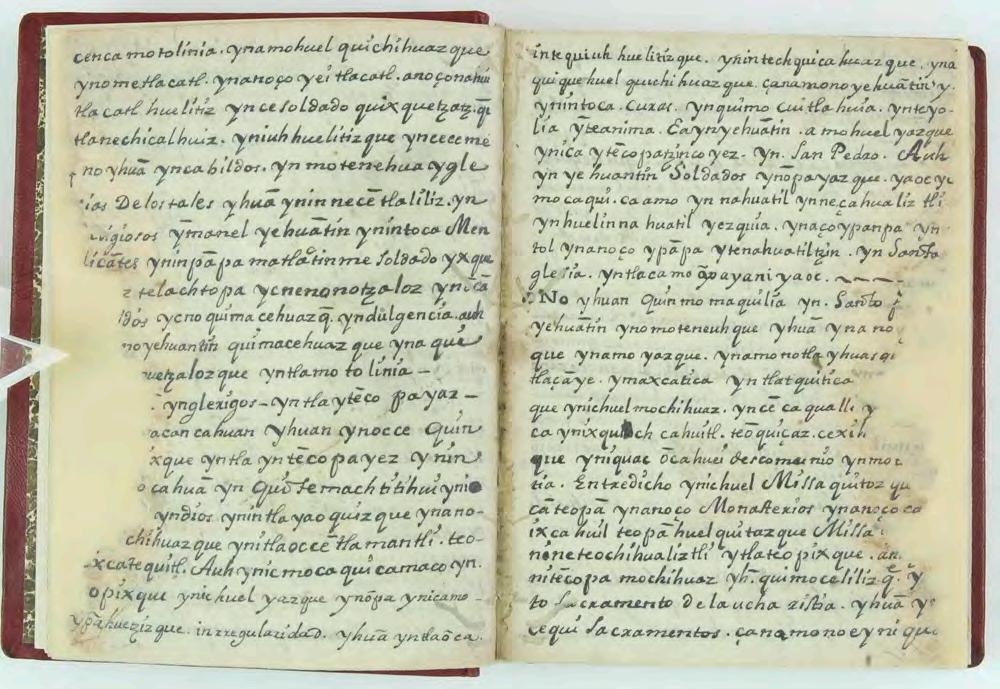 cenca motolinia. ynamohuel quichihuazque
ynometlacatl. ynanoço yei tlacatl. anoçonahui
tlacatl huelitiz yncesoldado quixquetzatz.q̃
tlanechicalhuiz. yniuh huelitizque yncecemē
noyhuā yncabildos. yn motenehua ygle
ias Delostales yhuā ynin necētlaliliz. yn
igiosos ȳmanel yehuātin ynintoca Men
licātes yninpāpa matlātinme soldado yxque
telachtopa ycnenonotzaloz
dos ycnoquimacehuazq̃. yndulgencia. auh
noyehuantin quimacehuazque ynaque
uetzalozque yntlamotolinia –
ynglerigos – yntlaytēco payaz –
acancahuan yhuan ynocce Quin
ixque yntla yntēcopayez ynin
ocahuā yn Quitemachtitihui yni
yndios ynintlayaoquizque ynano-
chihuazque ynitlaoccētlamantli. teo-
ixcatequitl. Auh ynicmocaquicamaco yn.
opixque ynichuel yazque ynōpa ynicamo-
ypāhuezizque. inrregularidad. yhuā yntlaōca.
intequiuh huelitizque. ynintechquicahuazque. yna
quiquehuel quichihuazque. çanamonoyehuātin y.
ynintoca. Curas. ynquimocuitlahuia. ynteyo-
lia ȳteanima. Eaynyehuātin. amohuel yazque
ynica ytēcopatzincoyez. yn. San Pedro. Auh
yn yehuantin Soldados ynōpayazque. yaoc y
mocaqui. caamo yn nahuatil ynneçahualiztli
ynhuelinnahuatil yezquia. ynaçoypanpa yn
tol ynanoço ypāpa ytenahuatiltzin. yn Santa
glesia. yntlacamo ōpayani yaoc.
No yhuan Quinmomaquilia yn. Santo
yehuātin ynomoteneuhque yhuā ynano
que ynamoyazque. ynamonotla yhuasqi
tlaçāye. ymaxcatica yntlatquitica
que ynichuelmochihuaz. yncēca qualli y
ca ynixquich cahuitl. teōquicaz. cexih
que yniquac ōcahuei descomunio ynmo
tia. Entredicho ynichuel Missa quitoz
cāteopā ynanoço Monasterios ynanoço ca
ixcahuil teopā huel quitazque Missa
nineteochihualiztli ytlateopixque. an.
nitēcopa mochihuaz yh. quimoceliliz q̃. y
to Sacramento delaucharistia. yhuā y
cequi Sacramentos. çanamonoeyni que